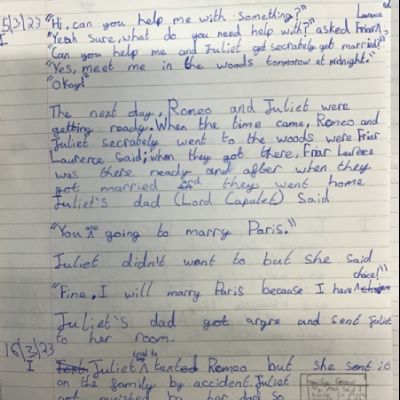 5/3/23 "Hi, can you help me with something?"
I "Yeah sure, what do you need help with?" asked Friar Laurence.
"Can you help me and Juliet get secrately get married?"
"Yes, meet me in the woods tomorrow at midnight."
"Okay!"
The next day, Romeo and Juliet were
getting ready. When the time came, Romeo and
Juliet secrately went to the woods were Friar
Laurence said; when they got there, Friar Laurence
was there ready and after when they
got married and they went home
Juliet's dad (Lord Capulet) said
"You are going to marry Paris."
Juliet didn't want to but she said
"Fine, I will marry Paris because I have choice!"
Juliet's dad got argre and sent Juliet
to her room.
16/3/23
I Text Juliet tried to texted Romeo but she sent it
on the family by accident. Juliet
got punished by her dad so